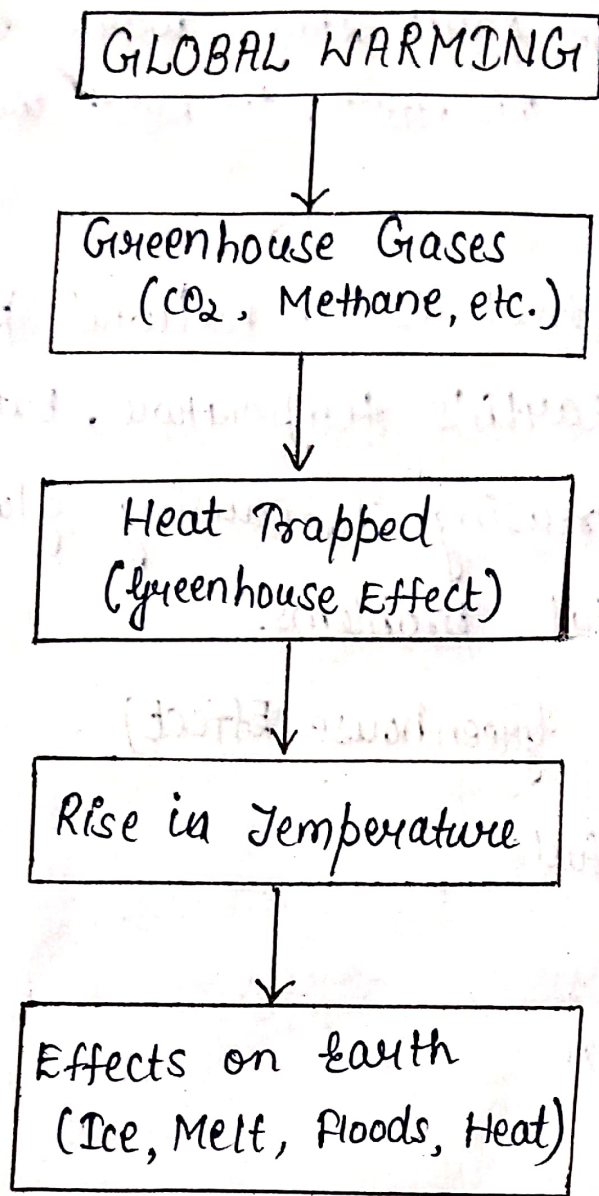 GLOBAL WARMING
Greenhouse Gases
(CO₂, Methane, etc.)
Heat Trapped
(Greenhouse Effect)
Rise in Temperature
Effects on Earth
(Ice, Melt, Floods, Heat)